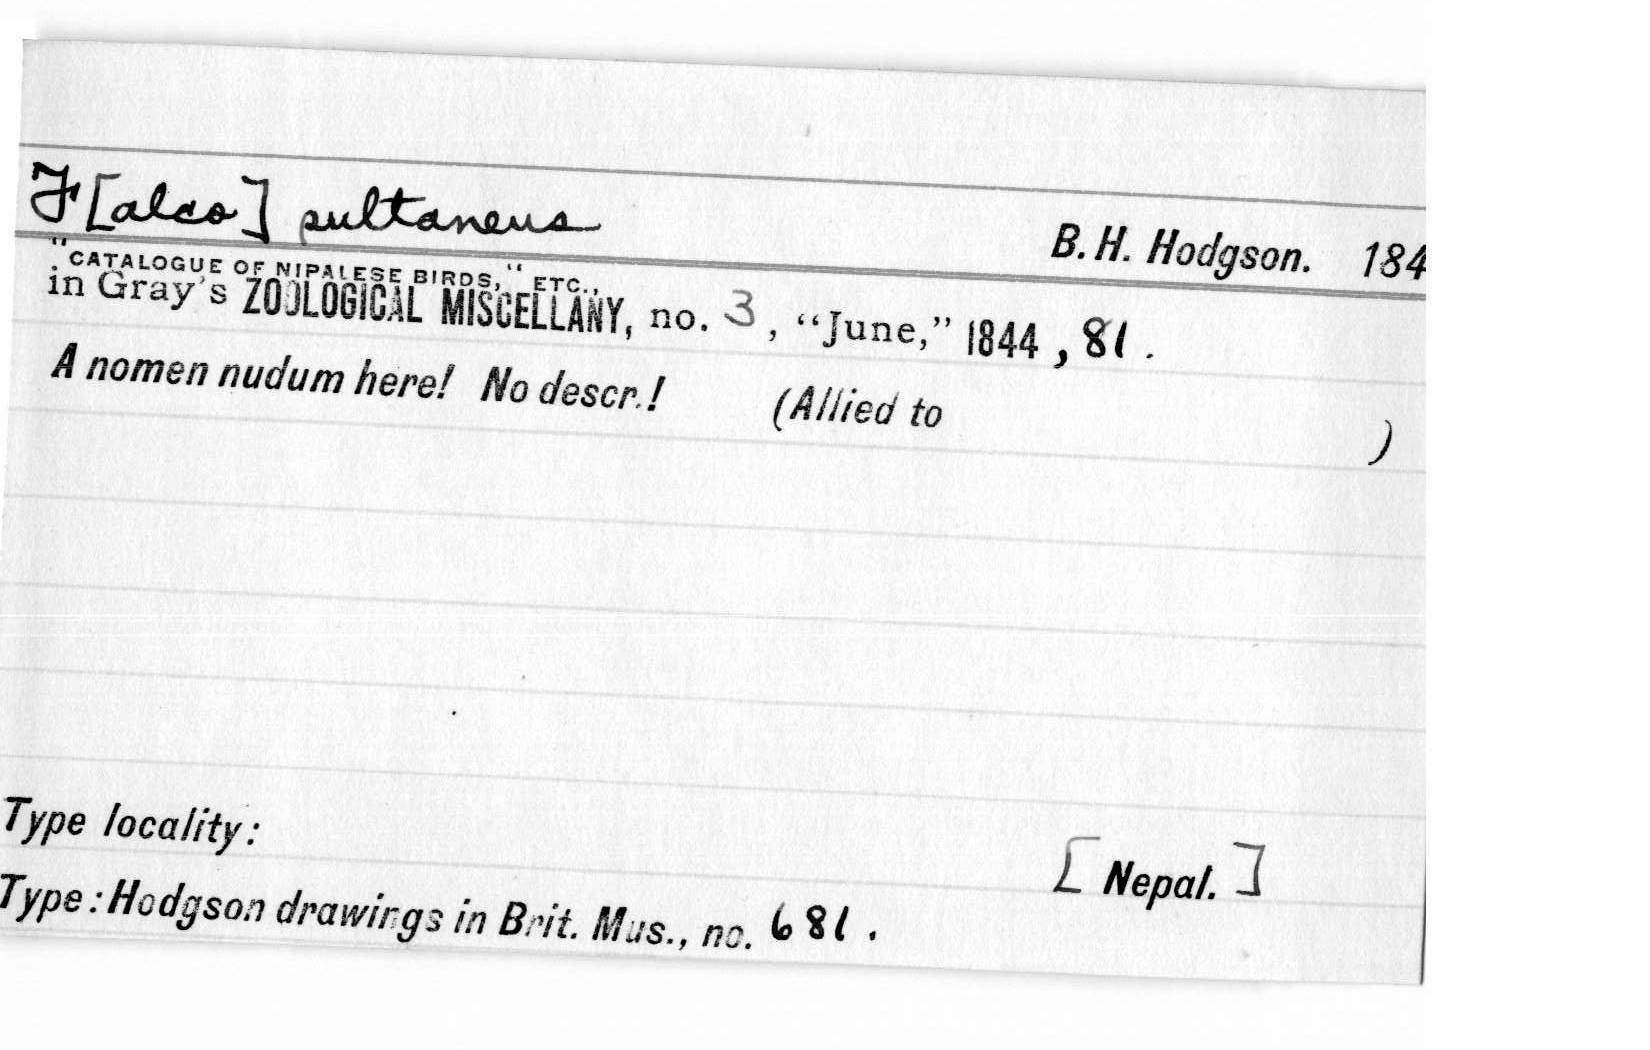 F[alco] sultaneus
B. H. Hodgson. 184
"CATALOGUE OF NIPALESE BIRDS," ETC.,
in Gray's ZOOLOGICAL MISCELLANY, no. 3, “June,” 1844, 81.
A nomen nudum here! No descr.! (Allied to )
Type locality: [Nepal.]
Type: Hodgson drawings in Brit. Mus., no. 681.